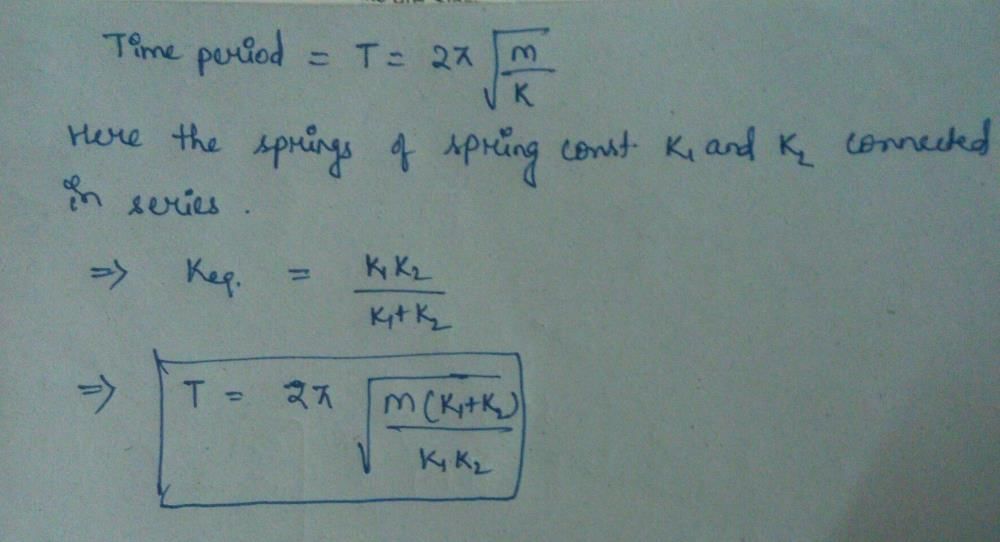 Time period = T = 2π √(m/K)
Here the springs of spring const K₁ and K₂ connected
in series.
=> Keq. = K₁K₂/(K₁+K₂)
=> T = 2π √(m(K₁+K₂)/(K₁K₂))